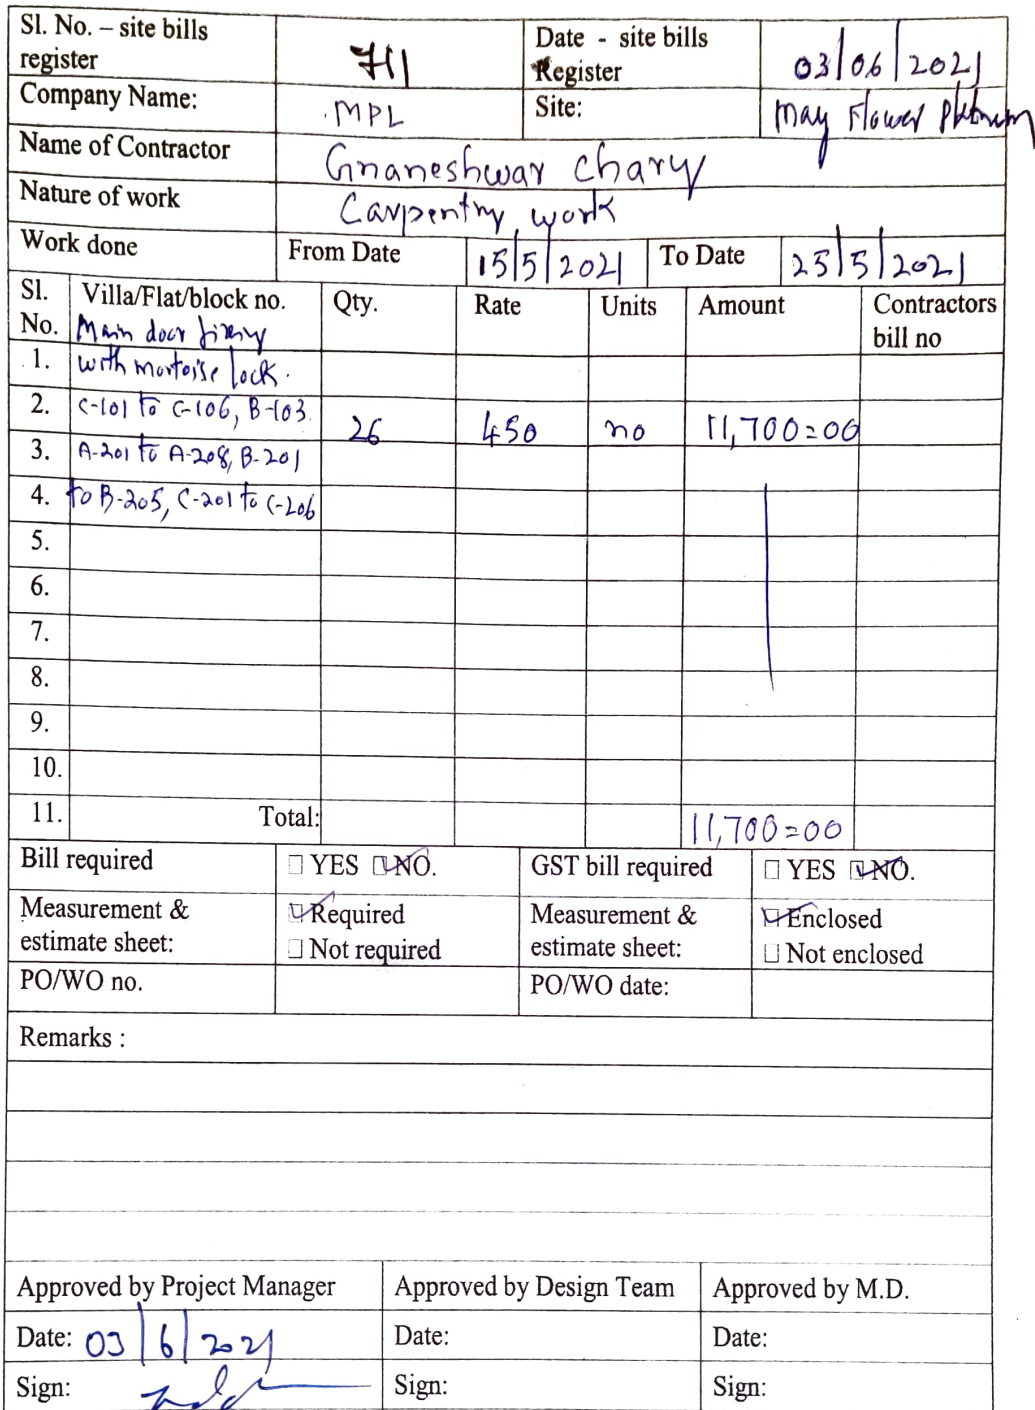 Sl. No. – site bills register 711 Date - site bills Register 03/06/2021
Company Name: MPL Site: May Flower Platinum
Name of Contractor Gnaneshwar chary
Nature of work Carpentry work
Work done From Date 15/5/2021 To Date 25/5/2021
Sl. No. Villa/Flat/block no. Qty. Rate Units Amount Contractors bill no
Main door fixing
1. with mortoise lock.
2. C-101 to C-106, B-103 26 450 no 11,700=00
3. A-201 to A-208, B-201
4. to B-205, C-201 to C-206
5.
6.
7.
8.
9.
10.
11. Total: 11,700=00
Bill required YES NO. GST bill required YES NO.
Measurement & estimate sheet: Required Not required Measurement & estimate sheet: Enclosed Not enclosed
PO/WO no. PO/WO date:
Remarks :
Approved by Project Manager Approved by Design Team Approved by M.D.
Date: 03/6/2021 Date: Date:
Sign: Sign: Sign: